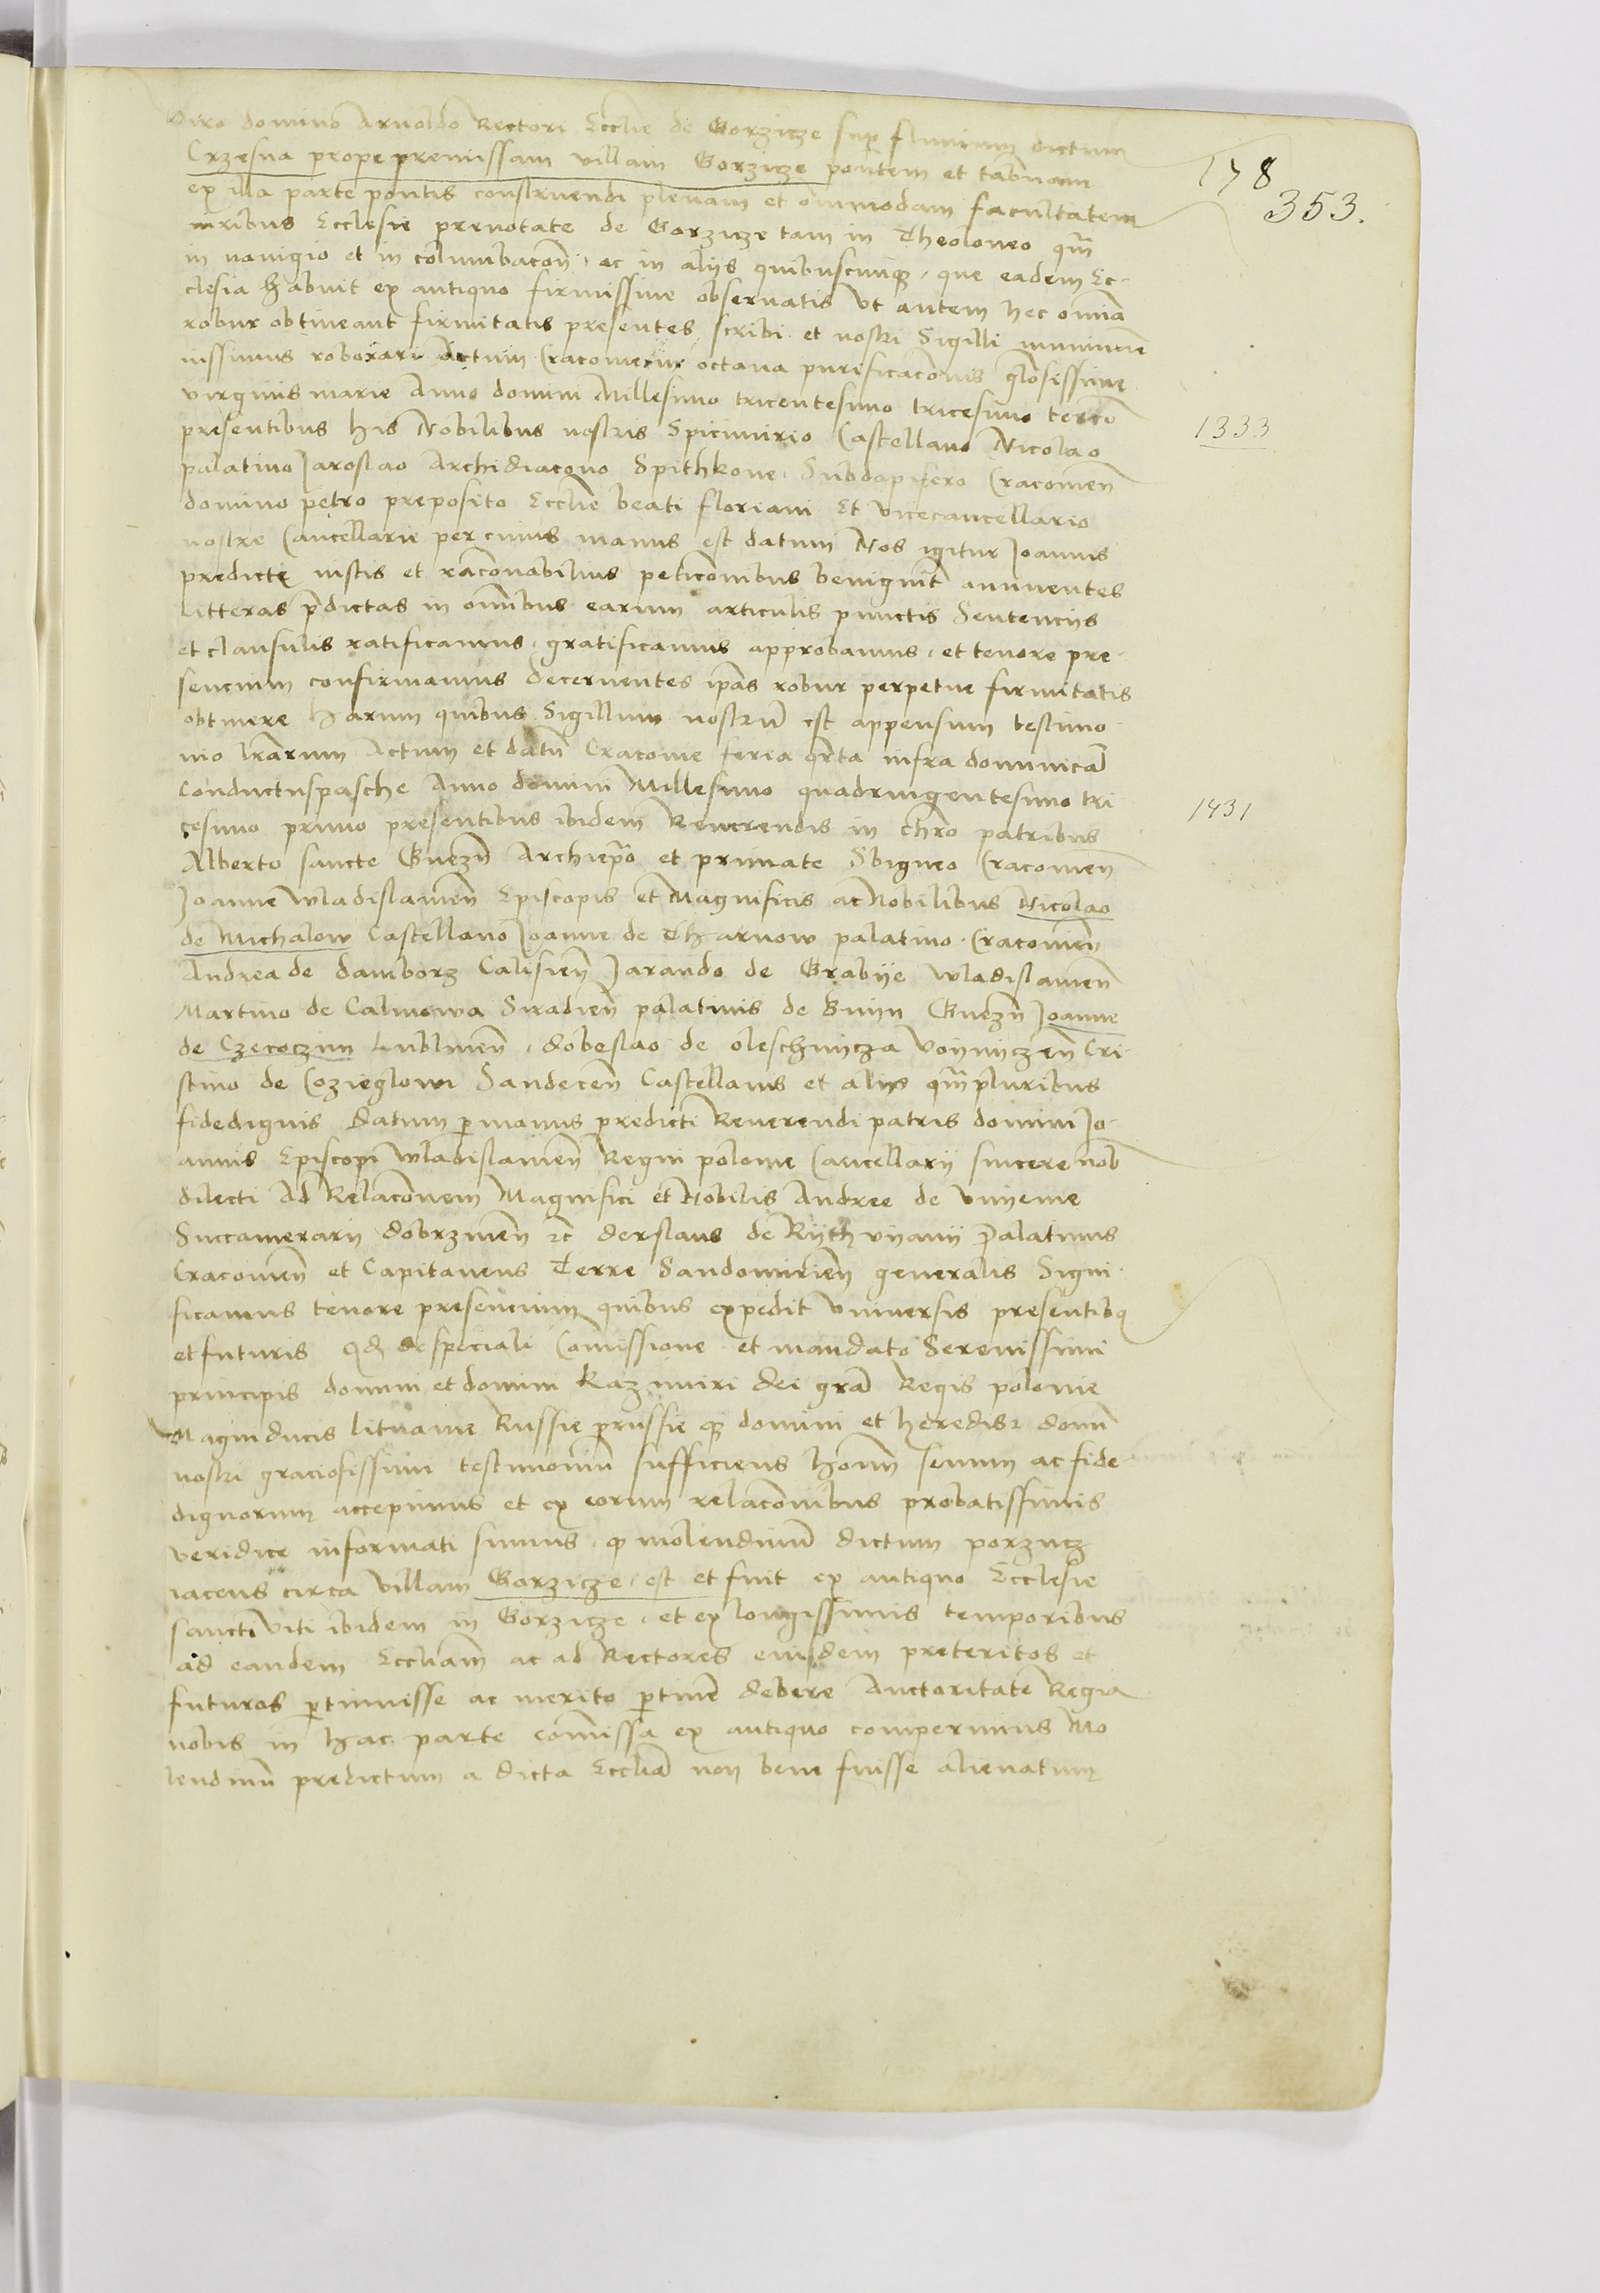 Viro domino Arnoldo Rectori Ecclie de Gorzicze sup fluvium dictum
Crzesna prope premissam villam Gorzicze pontem et tabnam
ex illa parte pontis construendi plenam et omnmodam facultatem
iuribus Ecclesie prenotate de Gorzicze tam in Theoloneo qm
in navigio et in columbacon, ac in aliis quibuscunque, que eadem Ec-
clesia habuit ex antiquo firmissime observatis Ut autem hec omnia
robur obtineant firmitatis presentes scribi et nostri Sigilli munimine
iussimus roborari Actum Cracovie in octava purificaconis glosissime
virginis marie Anno domini Millesimo tricentesimo tricesimo tercio
presentibus his Nobilibus nostris Spicimirio Castellano Nicolao
palatino Jaroslao Archidiacono Spithkone Subdapifero Cracovien
domino petro preposito Ecclie beati floriani Et vicecancellario
nostre Cancellarie per cuius manus est datum Nos igitur Joannis
predicti iustis et raconabilius peticonibus benignit annuentes
Litteras pdictas in omibus earum articulis punctis Sentenciis
et clausulis ratificamus, gratificamus approbamus, et tenore pre-
sencium confirmamus decernentes ipas robur perpetue firmitatis
obtinere Harum quibus Sigillum nostru est appensum testimo-
nio lrarum Actum et datu Cracovie feria qrta infra dominica
Conductuspasche Anno domini Millesimo quadringentesimo tri
cesimo primo presentibus ibidem Reverendis in chro patribus
Alberto sancte Gnezn Archiepo et primate Sbigneo Cracovien
Joanne Wladislavien Episcopis et Magnificis ac Nobilibus Nicolao
de Michalow Castellano Joanne de Tharnow palatino Cracovien
Andrea de Damborz Calisien Jarando de Grabije Wladislavien
Martino de Calinowa Siradien palatinis de Bnin Gnezn Joanne
de Czecoczim Lublinen, dobeslao de oleschnicza Voyniczen Cri-
stino de Cozieglowi Sandecen Castellanis et aliis qmpluribus
fidedignis Datum p manus predicti Reverendi patris domini Jo-
annis Episcopi Wladislavien Regni polonie Cancellarij sincere nob
dilecti Ad Relaconem Magnifici et Nobilis Andree de
Succamerarij dobrzinen zc derslaus de Rijthvijanij Palatinus
Cracovien et Capitaneus Terre Sandomirien generalis Signi-
ficamus tenore presencium quibus expedit Universis presentibq
et futuris qd de speciali Comissione et mandato Serenissimi
principis domini et domini Kazimiri dei gra Regis polonie
Magni ducis lituanie Russie prussieq domini et heredis domi
nostri graciosissimi testimoniu sufficiens homi senum ac fide-
dignorum accepimus et ex eorum relaconibus probatissimis
veridice informati sumus, q molendinum dictum porzucz
iacens circa villam Gorzicze, est et fuit ex antiquo Ecclesie
sancti viti ibidem in Gorzicze, et ex longissimis temporibus
ad eandem Eccliam ac ad Rectores eiusdem preteritos et
futuros ptinuisse ac merito ptine debere Auctoritate Regia
nobis in hac parte comissa ex antiquo comperimus Mo
lendinu predictum a dicta Ecclia non bene fuisse alienatum
178
353.
1333
1431